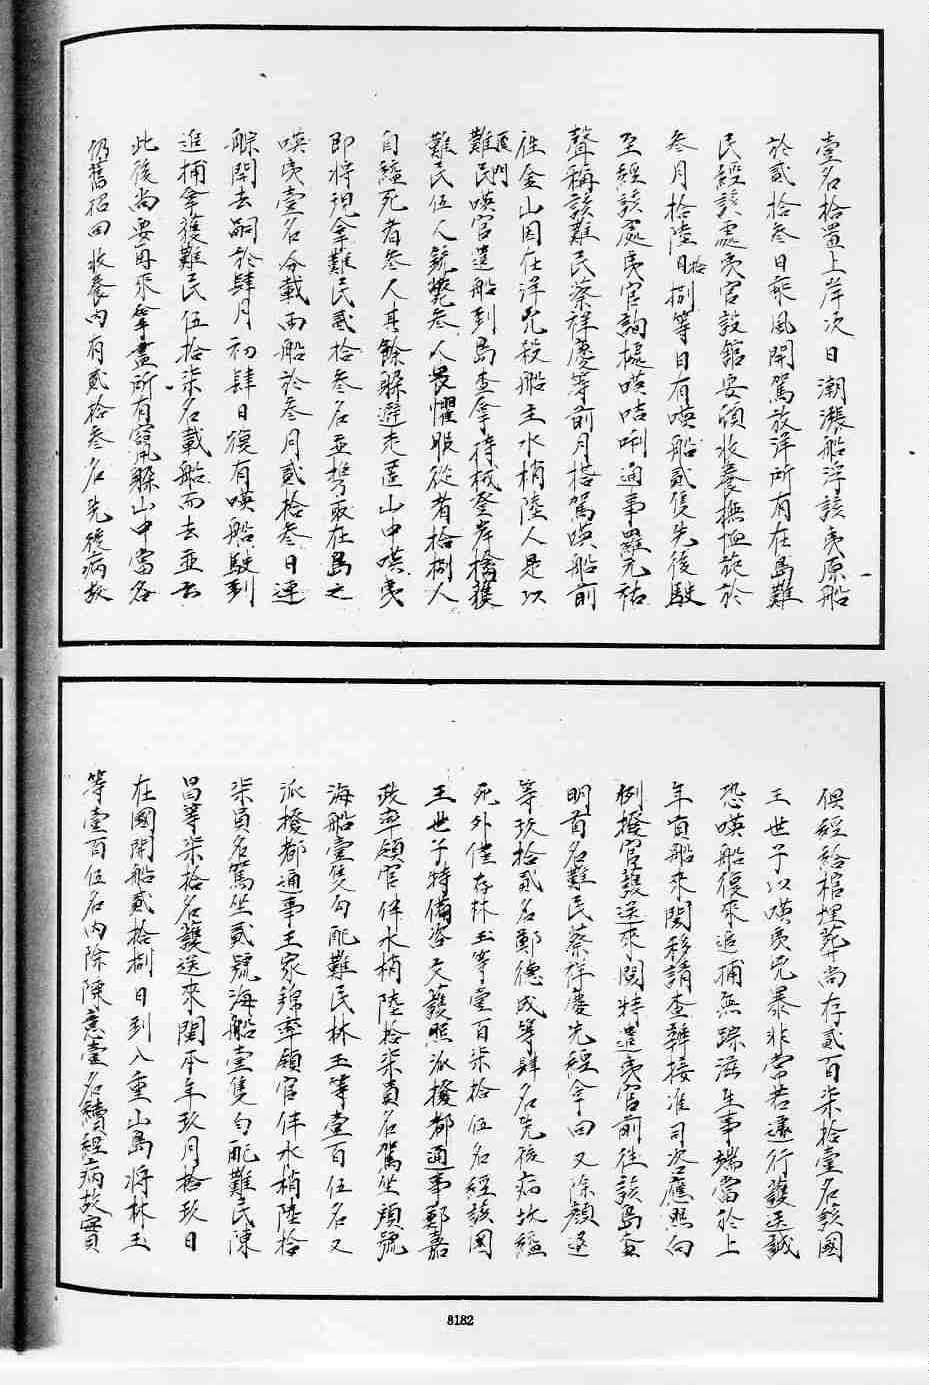 壹名拾置上岸次日潮漲船浮該夷原船
於貳拾叁日乘風開駕放洋所有在島難
民經該處夷官設館安頓收養撫恤旋於
叁月拾陸拾捌等日有嘆船貳隻先後駛
至經該處夷官詢據嘆咭唎通事羅元祐
聲稱該難民蔡祥慶等前月搭駕嘆船前
往金山因在洋兇殺船主水梢陸人是以
廈門
難民嘆官遣船到島查拿持械登岸擒獲
難民伍人銃斃叁人畏懼服從者拾捌人
自縊死者叁人其餘躲避走匿山中嘆夷
即將現拿難民貳拾叁名並先取在島之
嘆夷壹名分載兩船於叁月貳拾叁日連
䑸開去嗣於肆月初肆日復有嘆船駛到
追捕拿獲難民伍拾柒名載船而去並云
此後尚要再來拿盡所有竄躲山中當各
仍舊招回收養內有貳拾叁名先後病故
俱經給棺埋葬尚存貳百柒拾壹名該國
王世子以嘆夷兇暴非常若遽行護送誠
恐嘆船復來追捕無踪滋生事端當於上
年貢船來閩移請查辦接准司咨應照向
例撥官護送來閩特遣夷官前往該島查
明首名難民蔡祥慶先經拿回又除顏
等玖拾貳名鄭德成等肆名先後病故縊
死外僅存林玉等壹百柒拾伍名經該國
王世子特備咨文護照派撥都通事鄭嘉
政率領官伴水梢陸拾柒員名駕坐頭號
海船壹隻勻配難民林玉等壹百伍名又
派撥都通事王家錦率領官伴水梢陸拾
柒員名駕坐貳號海船壹隻勻配難民陳
昌等柒拾名護送來閩本年玖月拾玖日
在國開船貳拾捌日到八重山島將林玉
等壹百伍名內除陳意壹名續經病故實
8182